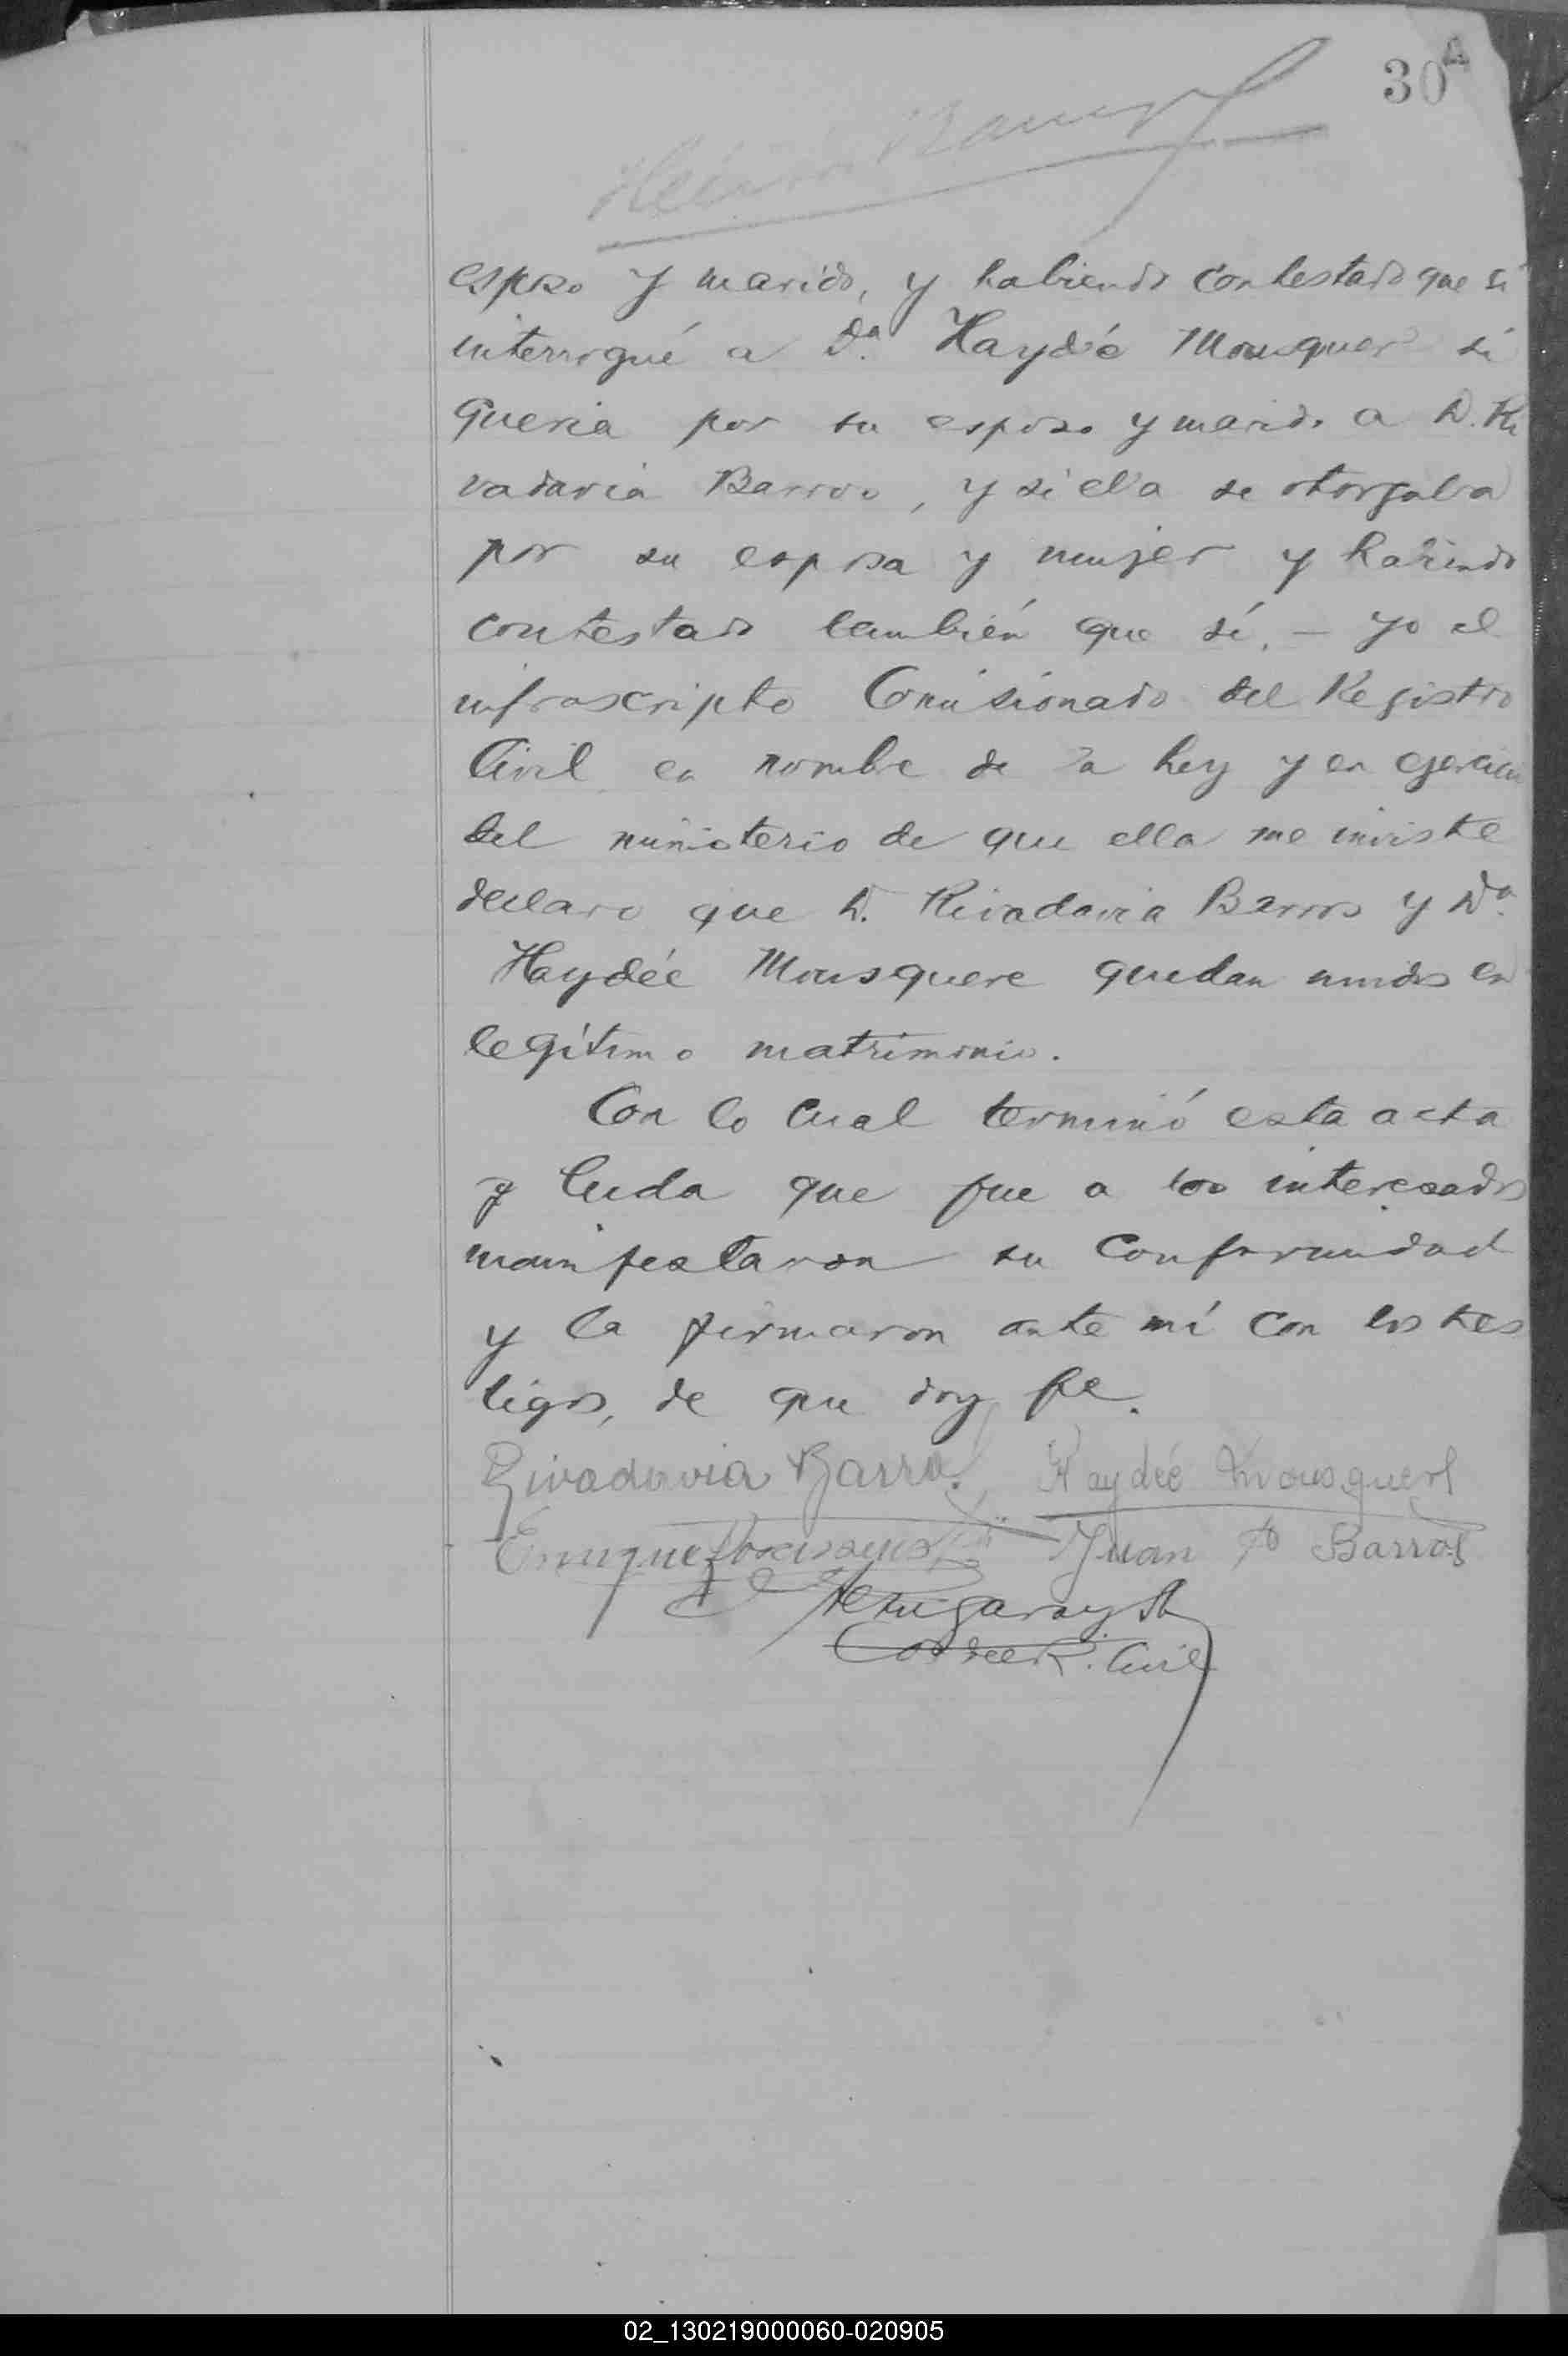 30
esposo y marido, y habiendo contestado que si
interrogué a Dª. Haydée Mousquer si
queria por su esposo y marido a D. Ri
vadavia Barros, y si ella se otorgaba
por su esposa y mujer y habiendo
contestado también que sí. — yo el
infrascripto Comisionado del Registro
Civil en nombre de la Ley y en ejercicio
del ministerio de que ella me inviste
declaro que D. Rivadavia Barros y Dª.
Haydée Mousquere quedan unidos en
legítimo matrimonio.
Con lo cual terminó esta acta
y leida que fue a los interesados
manifestaron su conformidad
y la firmaron ante mí con los tes
tigos, de que doy fe.
Rivadavia Barros Haydée Mousquere
Enrique Juan Barros
del R. Civil
02_130219000060-020905